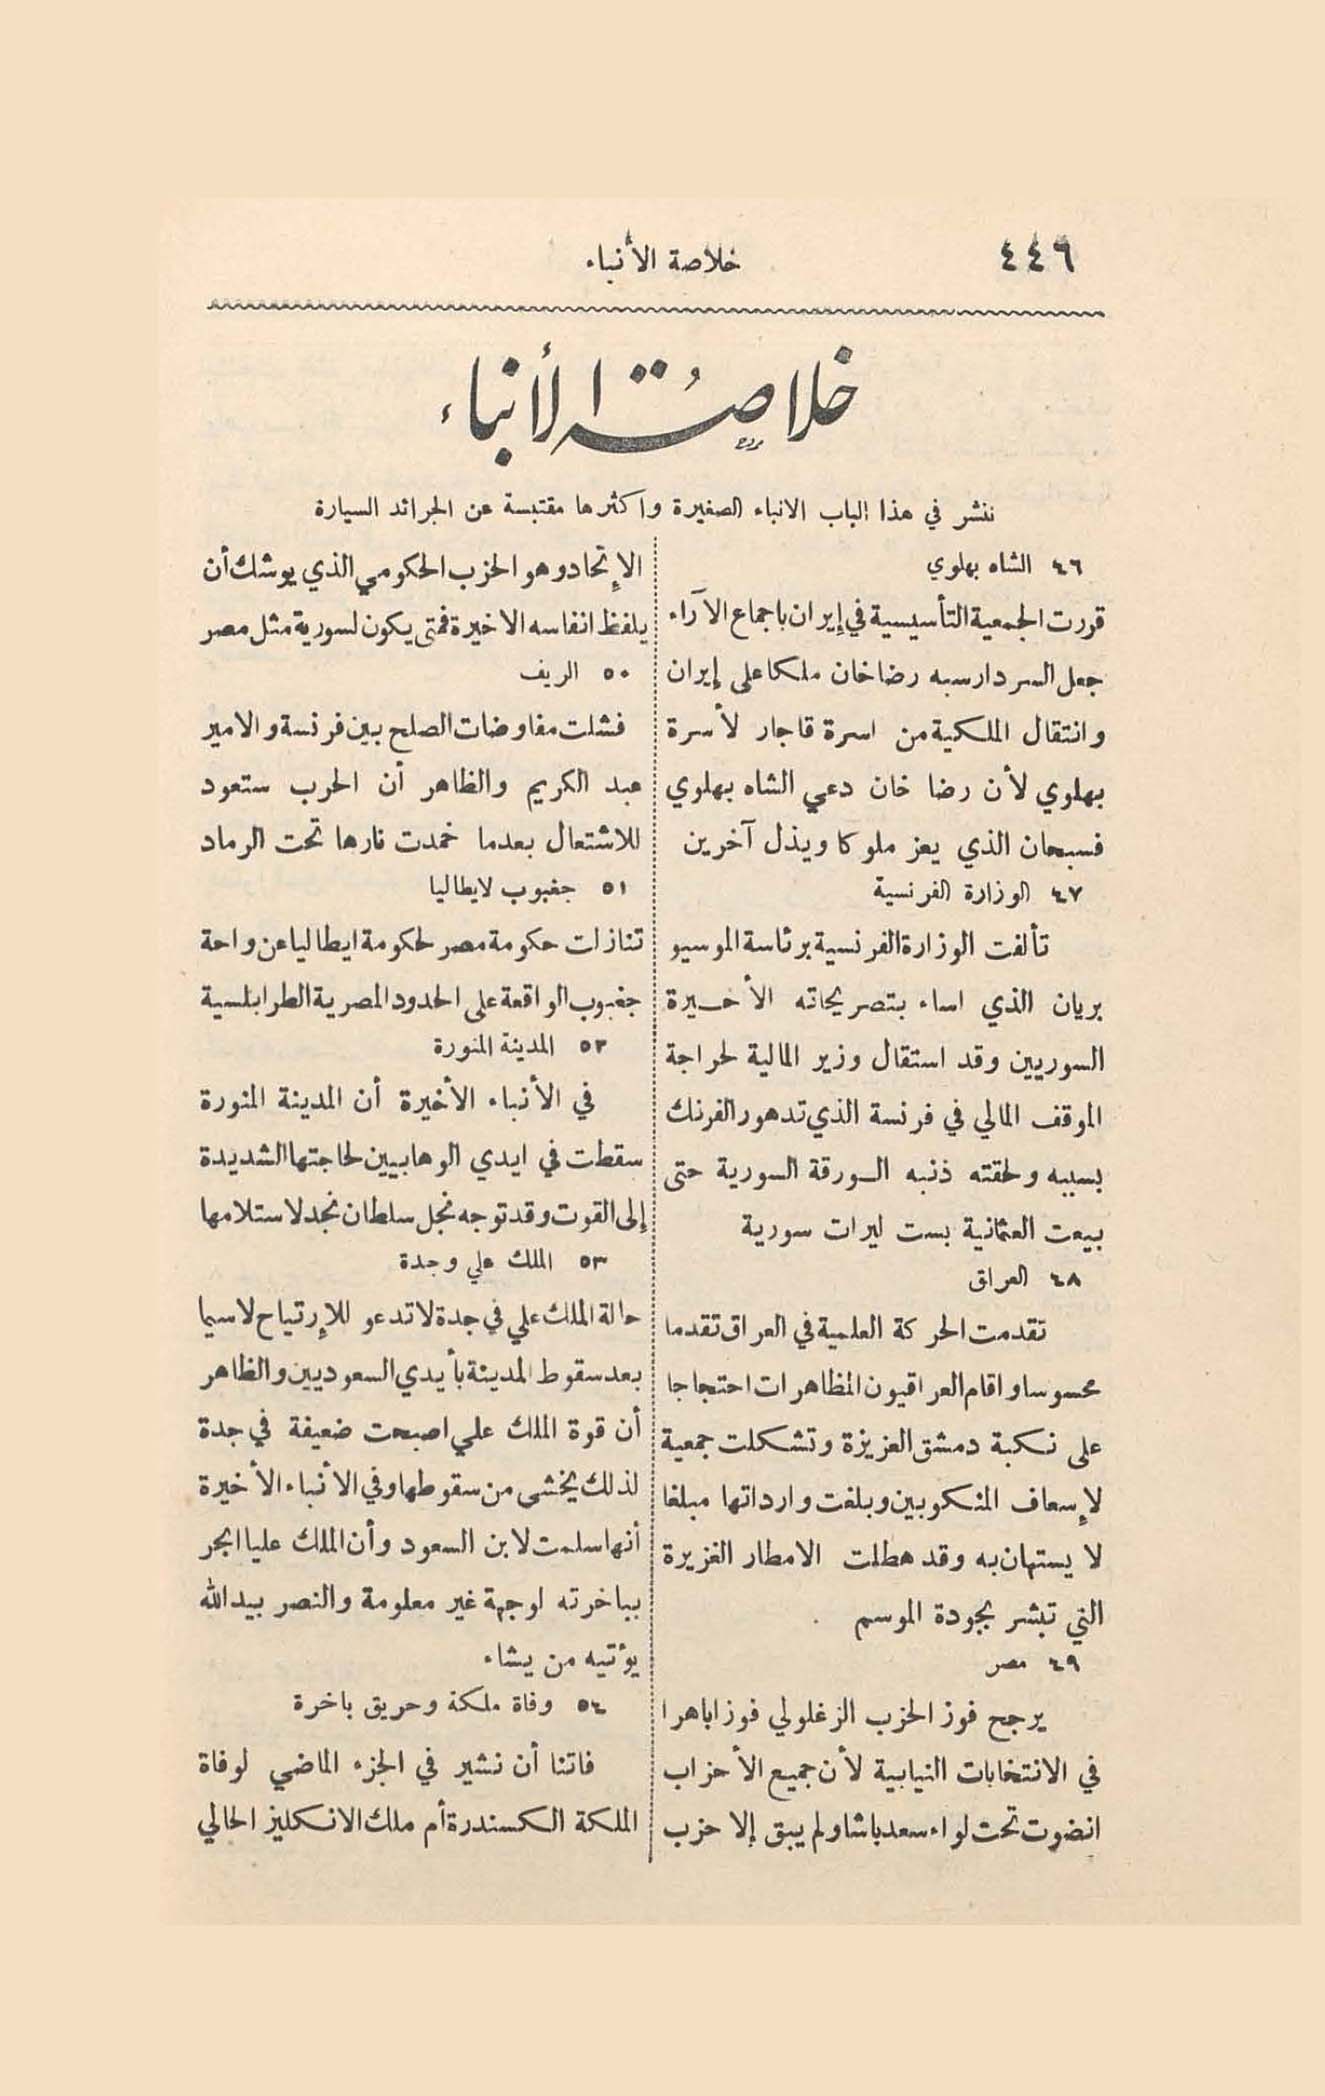 ٤٤٦
خلاصة الأنباء
خلاصة الأنباء
ننشر في هذا الباب الانباء الصغيرة واكثرها مقتبسة عن الجرائد السيارة
٤٦ الشاه بهلوي
قررت الجمعية التأسيسية في إيران باجماع الآراء
جعل السردار سبه رضا خان ملكا على إيران
وانتقال الملكية من اسرة قاجار لأسرة
بهلوي لأن رضا خان دعي الشاه بهلوي
فسبحان الذي يعز ملوكا ويذل آخرين
٤٧ الوزارة الفرنسية
تألفت الوزارة الفرنسية برئاسة الموسيو
بريان الذي اساء بتصريحاته الأخيرة
السوريين وقد استقال وزير المالية لحراجة
الموقف المالي في فرنسة الذي تدهور الفرنك
بسببه ولحقته ذنبه الورقة السورية حتى
بيعت العثمانية بست ليرات سورية
٤٨ العراق
تقدمت الحركة العلمية في العراق تقدما
محسوسا واقام العراقيون المظاهرات احتجاجا
على نكبة دمشق العزيزة وتشكلت جمعية
لإسعاف المنكوبين وبلغت وارداتها مبلغا
لا يستهان به وقد هطلت الامطار الغزيرة
التي تبشر بجودة الموسم
٤٩ مصر
يرجح فوز الحزب الزغلولي فوزا باهرا
في الانتخابات النيابية لأن جميع الأحزاب
انضوت تحت لواء سعد باشا ولم يبق إلا حزب
الإتحاد وهو الحزب الحكومي الذي يوشك أن
يلفظ انفاسه الاخيرة فمتى يكون لسورية مثل مصر
٥٠ الريف
فشلت مفاوضات الصلح بين فرنسة والامير
عبد الكريم والظاهر أن الحرب ستعود
للاشتعال بعدما خمدت نارها تحت الرماد
٥١ جغبوب لايطاليا
تنازلت حكومة مصر لحكومة ايطاليا عن واحة
جغبوب الواقعة على الحدود المصرية الطرابلسية
٥٢ المدينة المنورة
في الأنباء الأخيرة أن المدينة المنورة
سقطت في ايدي الوهابيين لحاجتها الشديدة
إلى القوت وقد توجه نجل سلطان نجد لاستلامها
٥٣ الملك علي وجدة
حالة الملك علي في جدة لا تدعو للإرتياح لاسيما
بعد سقوط المدينة بأيدي السعوديين والظاهر
أن قوة الملك علي اصبحت ضعيفة في جدة
لذلك يخشى من سقوطها وفي الأنباء الأخيرة
أنها سلمت لابن السعود وأن الملك عليا ابحر
بباخرته لوجهة غير معلومة والنصر بيد الله
يؤتيه من يشاء
٥٤ وفاة ملكة وحريق باخرة
فاتنا أن نشير في الجزء الماضي لوفاة
الملكة الكسندرة أم ملك الانكليز الحالي